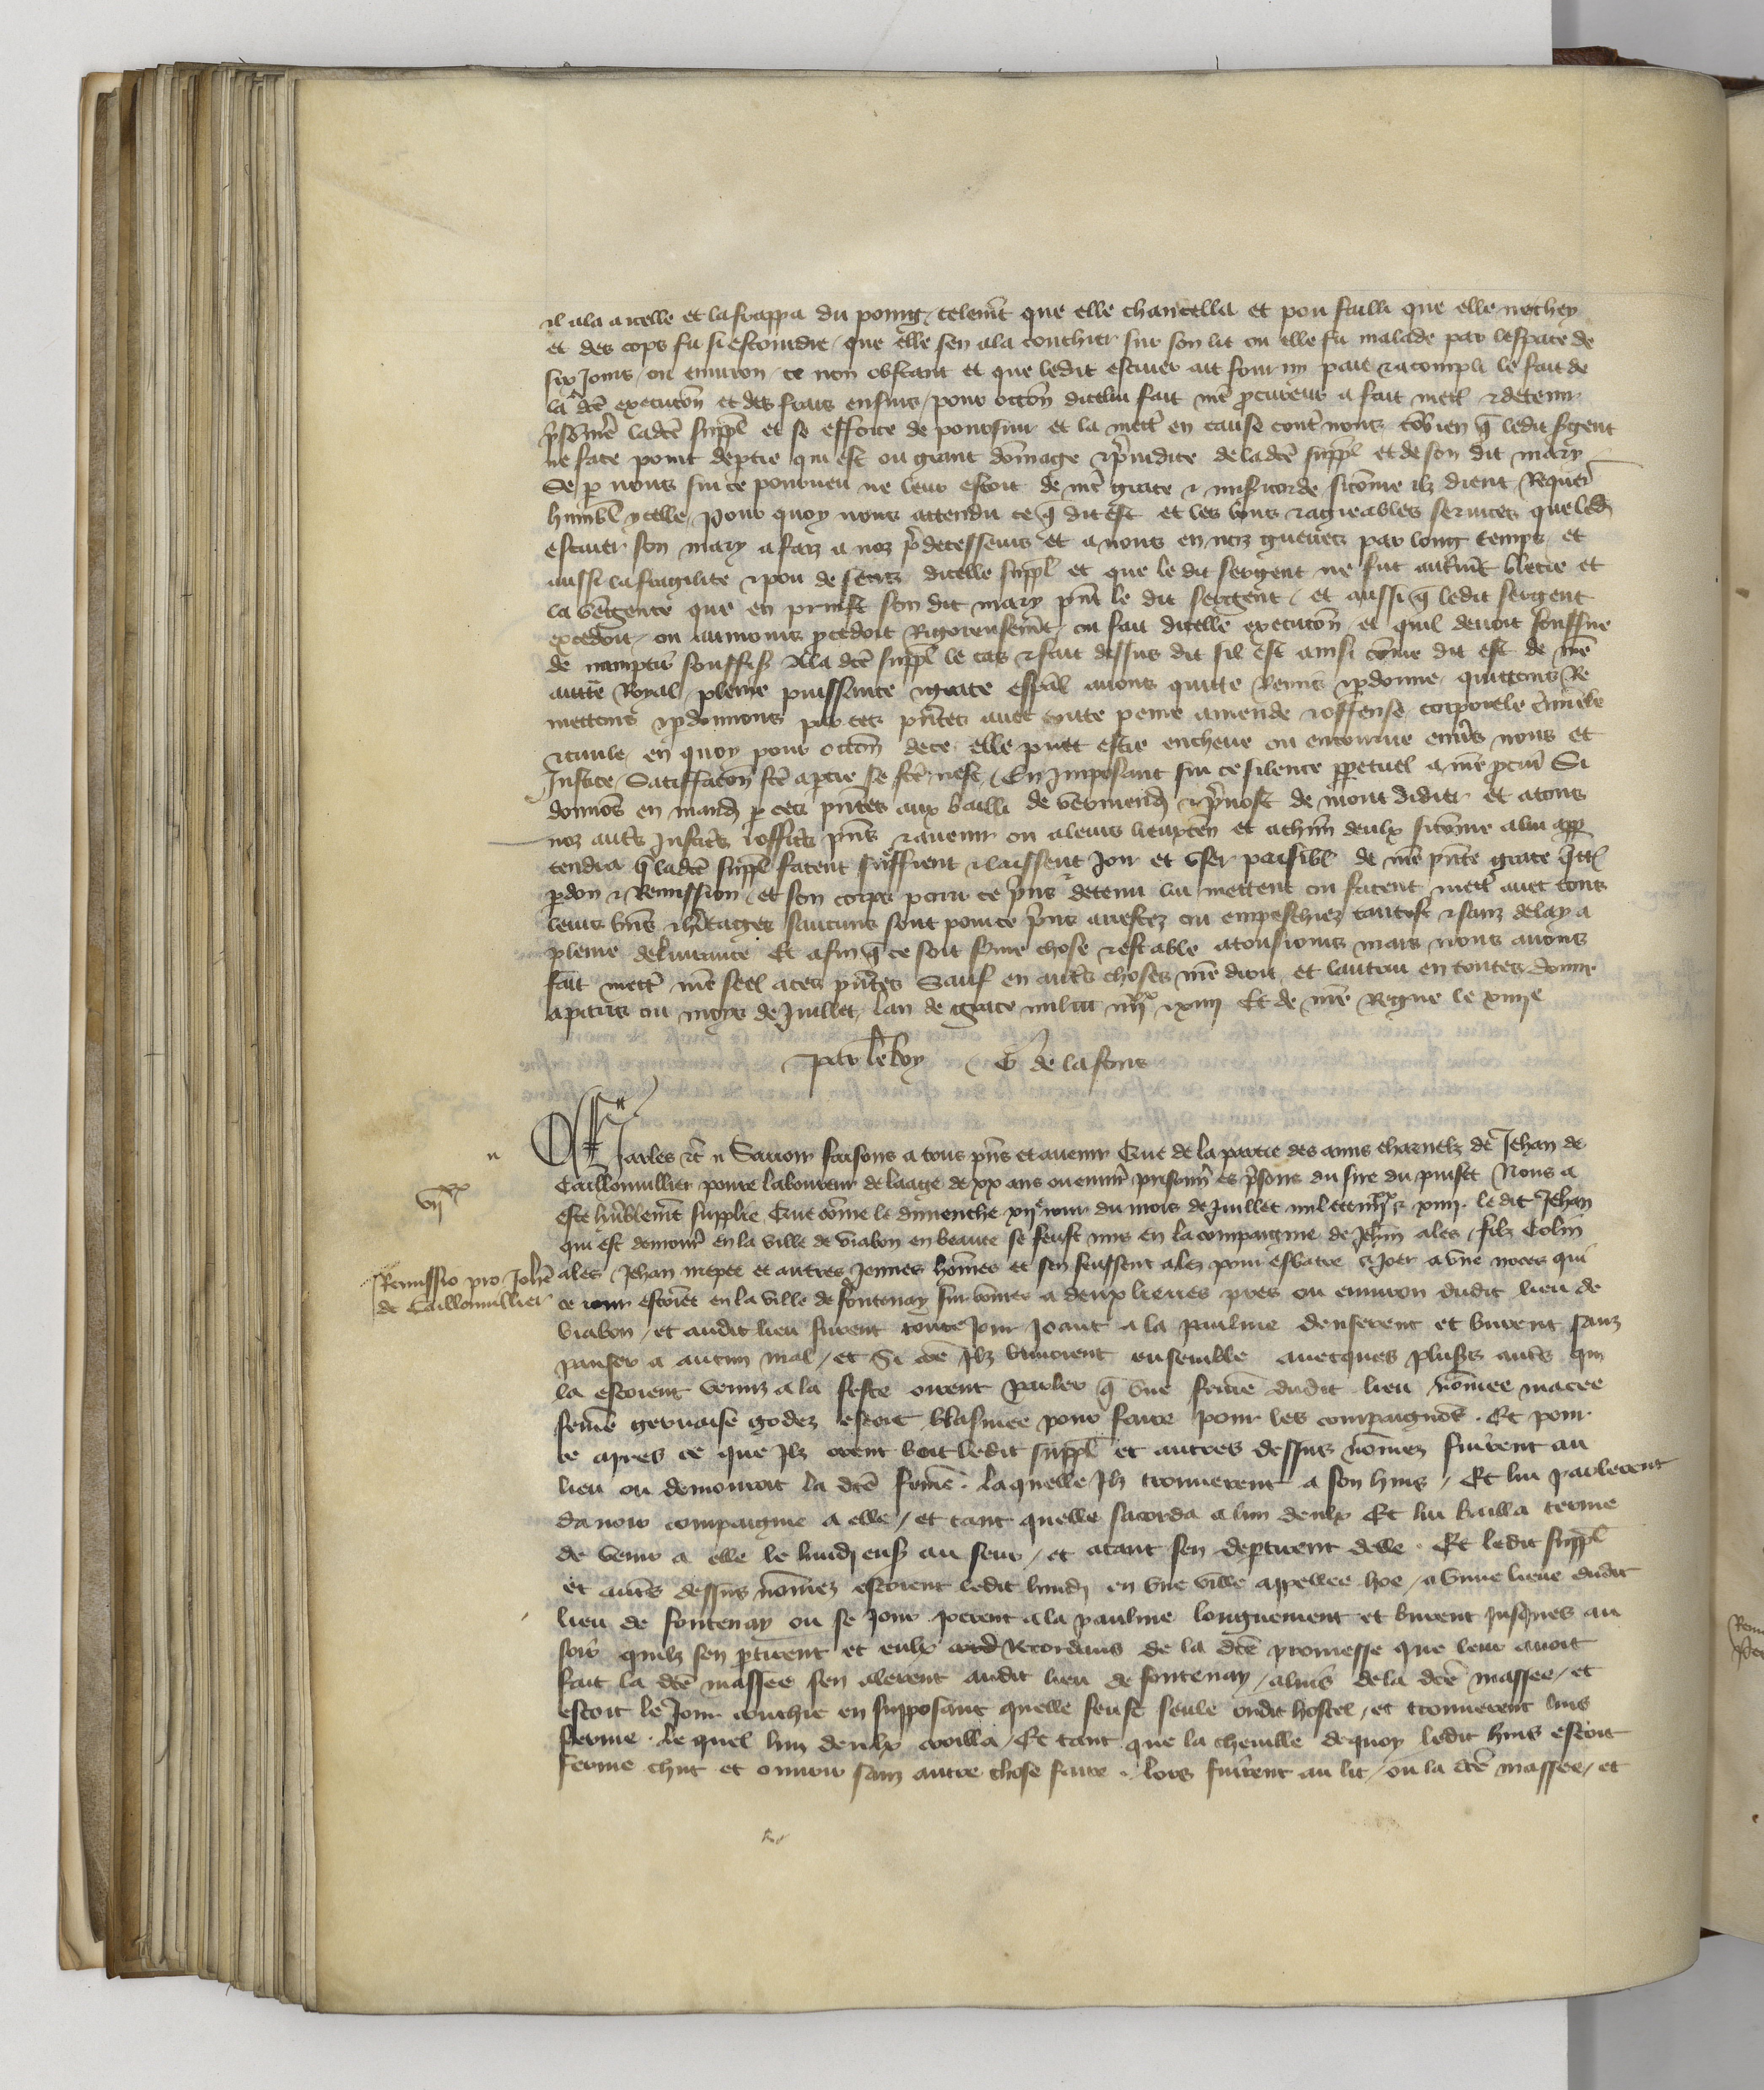 il ala a icelle et la frappa du poing telemt que elle chancella et pou failli que elle ne chey
et des cops fu si estourdie que elle sen ala couchier sur son lit ou elle fu malade par lespace de
six jours ou environ ce non obstant et que ledit escuier ait fourni paie et acompli le fait de
la dce execucon et des frais ensuis pour occon dicelui fait nre procureur a fait mett et detenir
prisonniere ladce suppl et se efforce de poursuir et la mettr en cause contr nous combien q ledit sgent
ne face point deptie qui est ou grant domage et preiudice de ladce suppl et de son dit mary
Se p nous sur ce pourveu ne leur estoit de nre grace et misicorde sicome ilz dient Requer
humbl ycelle pour quoy nous attendu ce q dit est et les bons et agreables services que led
escuier son mary a faiz a noz predecesseurs et a nous en noz guerres par long temps et
aussi la fragilite et pou de sens dicelle suppl et que le dit sergent ne fut autremt blecie et
la vengence que en prinst son dit mary pnt le dit sergent et aussi q ledit sergent
excedoit ou aumoins pcedoit Rigoreusemt ou fait dicelle execucon et quil devoit
de souffis A la dce suppl le cas et fait dessus dit sil est ainsi come dit est de nre
auctte Royal pleine puissance et grace espal avons quitte Remis et pdonne quittons Re
mettons et pdonnons par ces pntes avec toute peine amende et offense corporele criminele
et civile en quoy pour occon de ce elle puet estre encheue ou encourue envs nous et
Justice Satiffacon fce aptie se fce nest En Imposant sur ce silence ppetuel a nre pcur Si
donnos en mand p ces pntes aux bailli de Vermend et prevost de mont didier et a tous
noz autrs Justicrs et officrs pns et avenir ou a leurs lieuxten et a chun deulx sicome a lui app
tendra q ladce suppl facent sueffrent et laissent Joir et user paisibl de nre pnte grace quitt
pdon et Remission et son corps pour ce prins detenu lui mettent ou facent mettr avec tous
leurs bns et heritages saucuns sont pour ce prins arrestez ou empeschiez tantost et sanz delay a
pleine delivrance Et afin q ce soit ferme chose et estable atousiours mais nous avons
fait mettr nre seel a ces pntes Sauf en autrs choses nre droit et lautrui en toutes donne
a paris ou moys de Juillet lan de grace mil ccc iiiixx et xiiii Et de nre Regne le xiiiie
par le Roy G de lafons
Charles etc Savoir faisons a tous pns et avenir Que de la partie des amis charnelz de Jehan de
Caillonvillier povre laboureur de laage de xx ans ou envir prisonnr es prisons du sire du puiset Nous a
este humblemt supplie Que come le dimenche xiie jour du mois de Juillet mil ccc iiiixx et xiiii le dit Jehan
qui est demourr en la ville de viabon en beauce se feust mis en la compaignie de Jehan ales filz Colin
ales Jehan et autres Jeunes homes et sen feussent alez pour esbatre et Joer a une noces qui
ce jour estoiet en la ville de fontenay sur a deux lieues pres ou environ dudit lieu de
viabon et audit lieu furent toute jour Joant a la paulme danserent et burent sanz
panser a aucun mal et Si come Ilz buvoient ensemble avecques plusrs autrs qui
la estoient venuz a la feste oirent parler q une femme dudit lieu nomee macee
feme gervaise godez estoit blasmee pour faire pour les compaignos Et pour
ce apres ce que Ilz orent boit ledit suppl et autres dessus nomez furent au
lieu ou demouroit la dce feme laquelle Ilz trouverent a son huis Et lui parlerent
davoir compaignie a elle et tant quelle sacorda a lun deulx Et lui bailla terme
de venir a elle le lundi ens au seur et a tant sen deptirent delle Et ledit suppl
et autrs dessus nomez estoient ledit lundi en une ville appellee hoe a une lieue dudit
lieu de fontenay ou se jour joerent a la paulme longuement et burent jusques au
soir quilz sen ptirent et eulx recordans de la dce promesse que leur avoit
fait la dce massee sen alerent audit lieu de fontenay a luis de la dce massee et
estoit le Jour couchie en supposant quelle feust seule oudit hostel et trouverent luis
ferme le quel lun deulx et tant que la cheville dequoy ledit huis estoit
ferme chut et ouvrir sanz autre chose faire lors furent au lit ou la dce massee et
viixx
Remissio pro Johe
de Caillonvillier